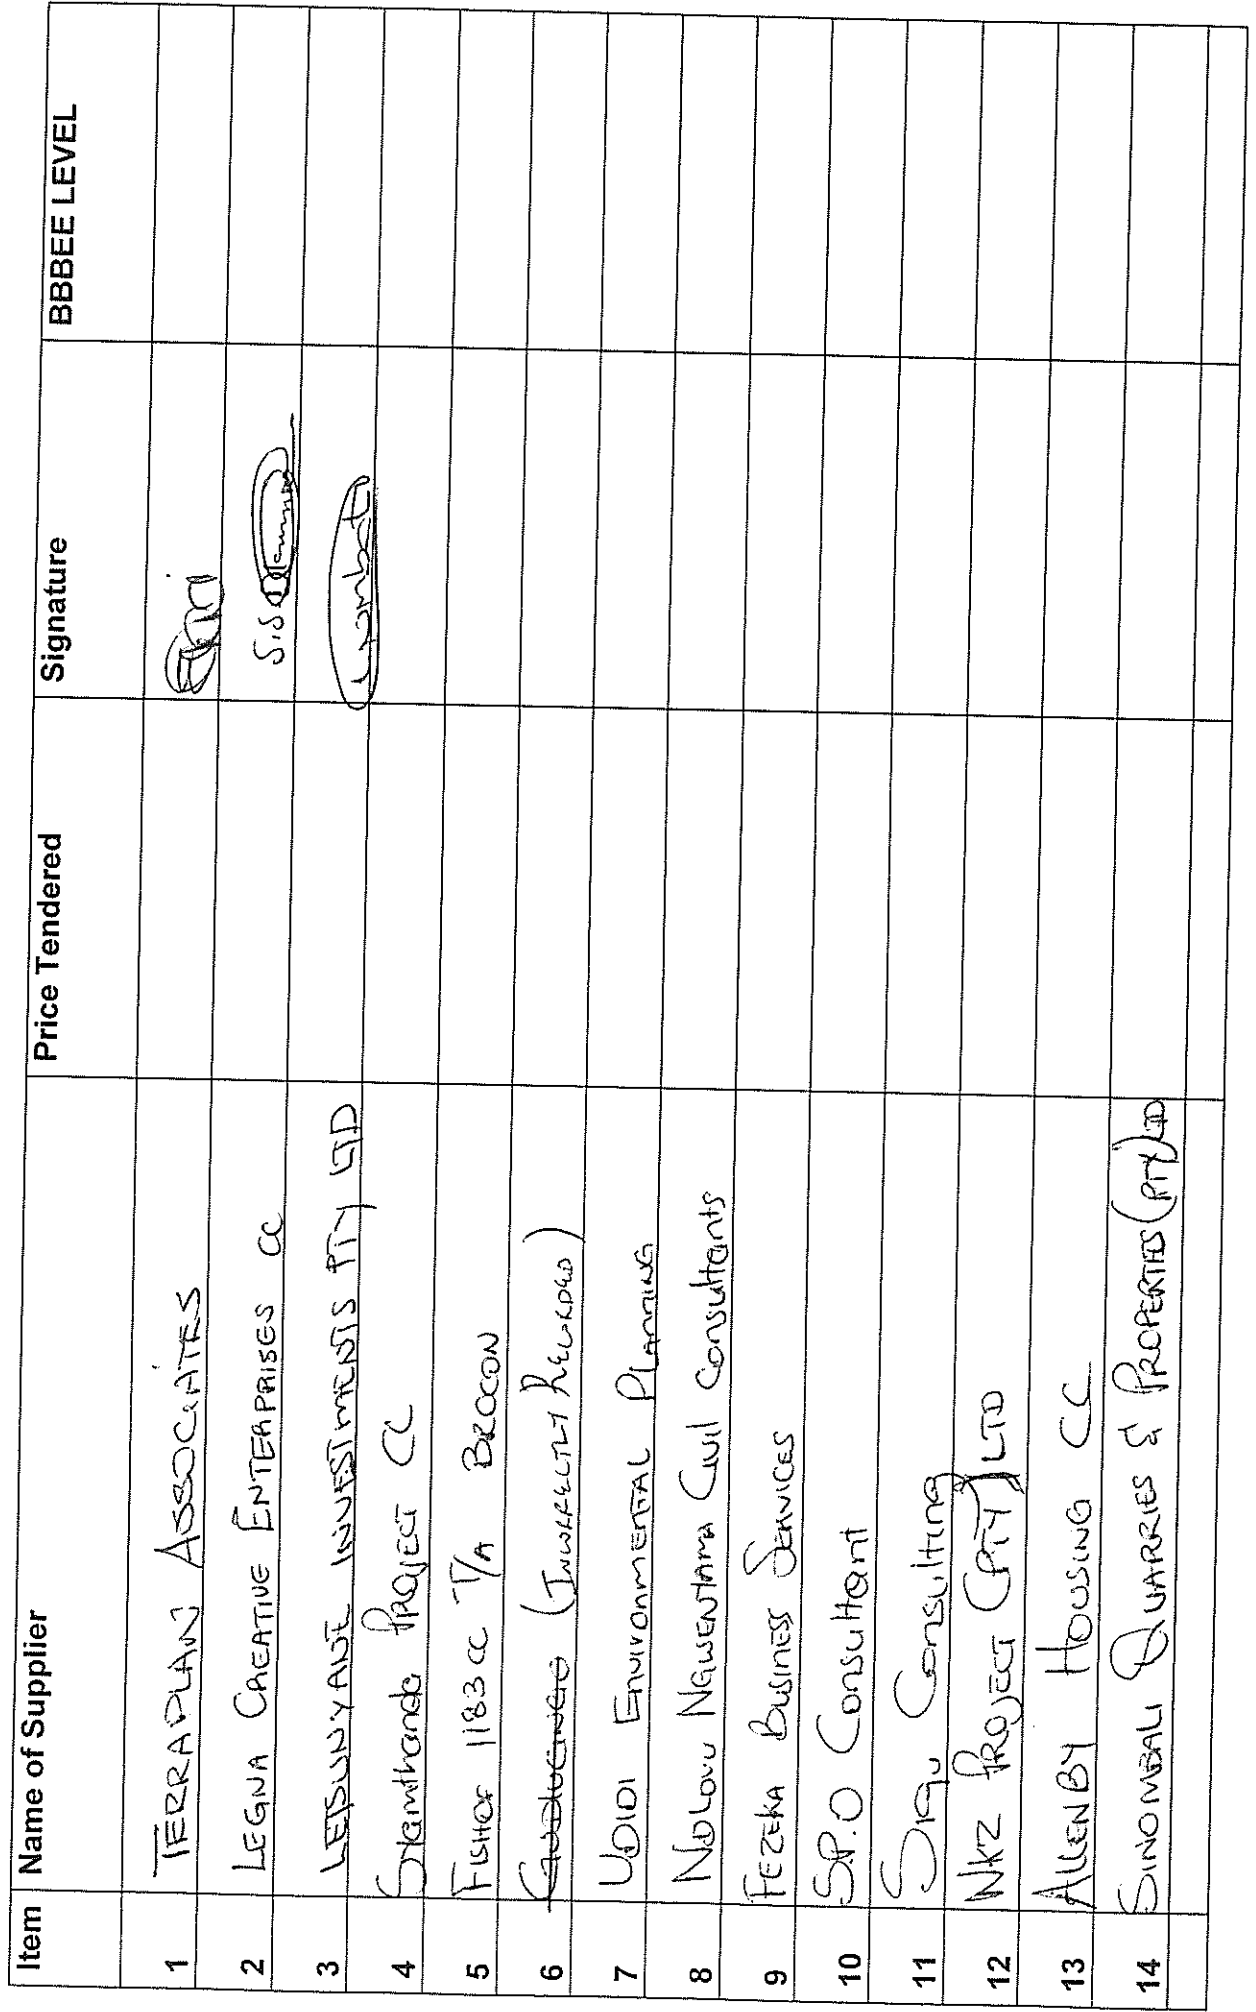 Item Name of Supplier Price Tendered Signature BBBEE LEVEL
1 TERRAPLAN ASSOCIATES
2 LEGNA CREATIVE ENTERPRISES CC
3 LETSUNYANE INVESTMENTS PTY LTD
4 Siyamthanda PROJECT CC
5 FISHOF 1183 CC T/A BROCON
6 (INCORRECTLY RECORDED)
7 UDIDI ENVIRONMENTAL PLANNING
8 NDLOVU NGUSENTAMA CIVIL CONSULTANTS
9 FEZEKA BUSINESS SERVICES
10 S.P.O Consultant
11 SIGU Consulting
12 NKZ PROJECT (PTY) LTD
13 ALLENBY HOUSING CC
14 SINOMBALI QUARRIES & PROPERTIES (PTY) LTD